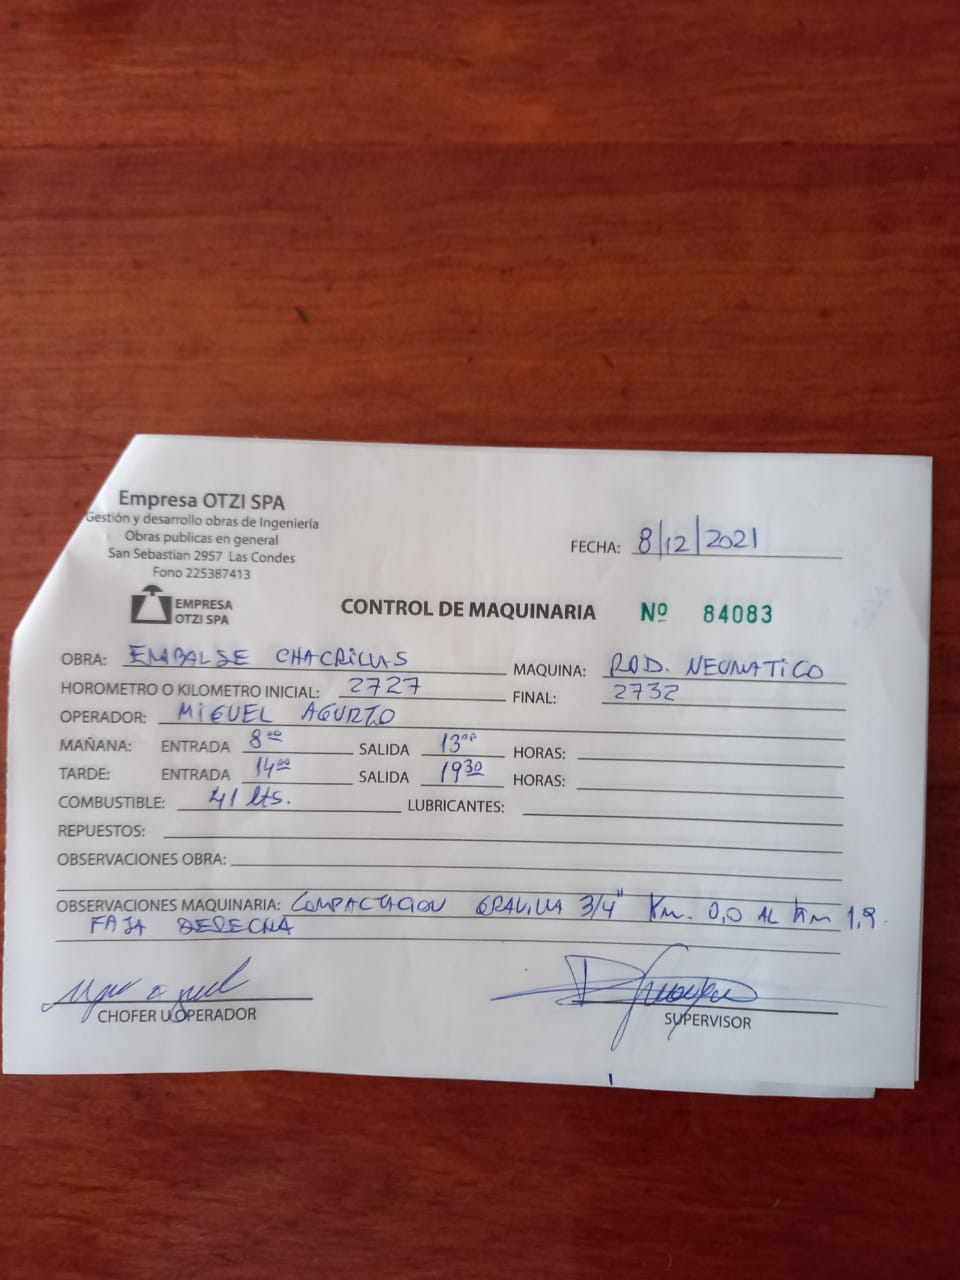 Empresa OTZI SPA
Gestión y desarrollo obras de Ingeniería
Obras publicas en general
San Sebastian 2957 Las Condes
Fono 225387413
FECHA: 8/12/2021
EMPRESA
OTZI SPA
CONTROL DE MAQUINARIA Nº 84083
OBRA: EMBALSE CHACRILLAS MAQUINA: ROD. NEUMATICO
HOROMETRO O KILOMETRO INICIAL: 2727 FINAL: 2732
OPERADOR: MIGUEL AGURTO
MAÑANA: ENTRADA 8:00 SALIDA 13:00 HORAS:
TARDE: ENTRADA 14:00 SALIDA 19:30 HORAS:
COMBUSTIBLE: 41 lts. LUBRICANTES:
REPUESTOS:
OBSERVACIONES OBRA:
OBSERVACIONES MAQUINARIA: COMPACTACION GRAVILLA 3/4" Km. 0,0 AL Km 1,9.
FAJA DERECHA
CHOFER U OPERADOR
SUPERVISOR